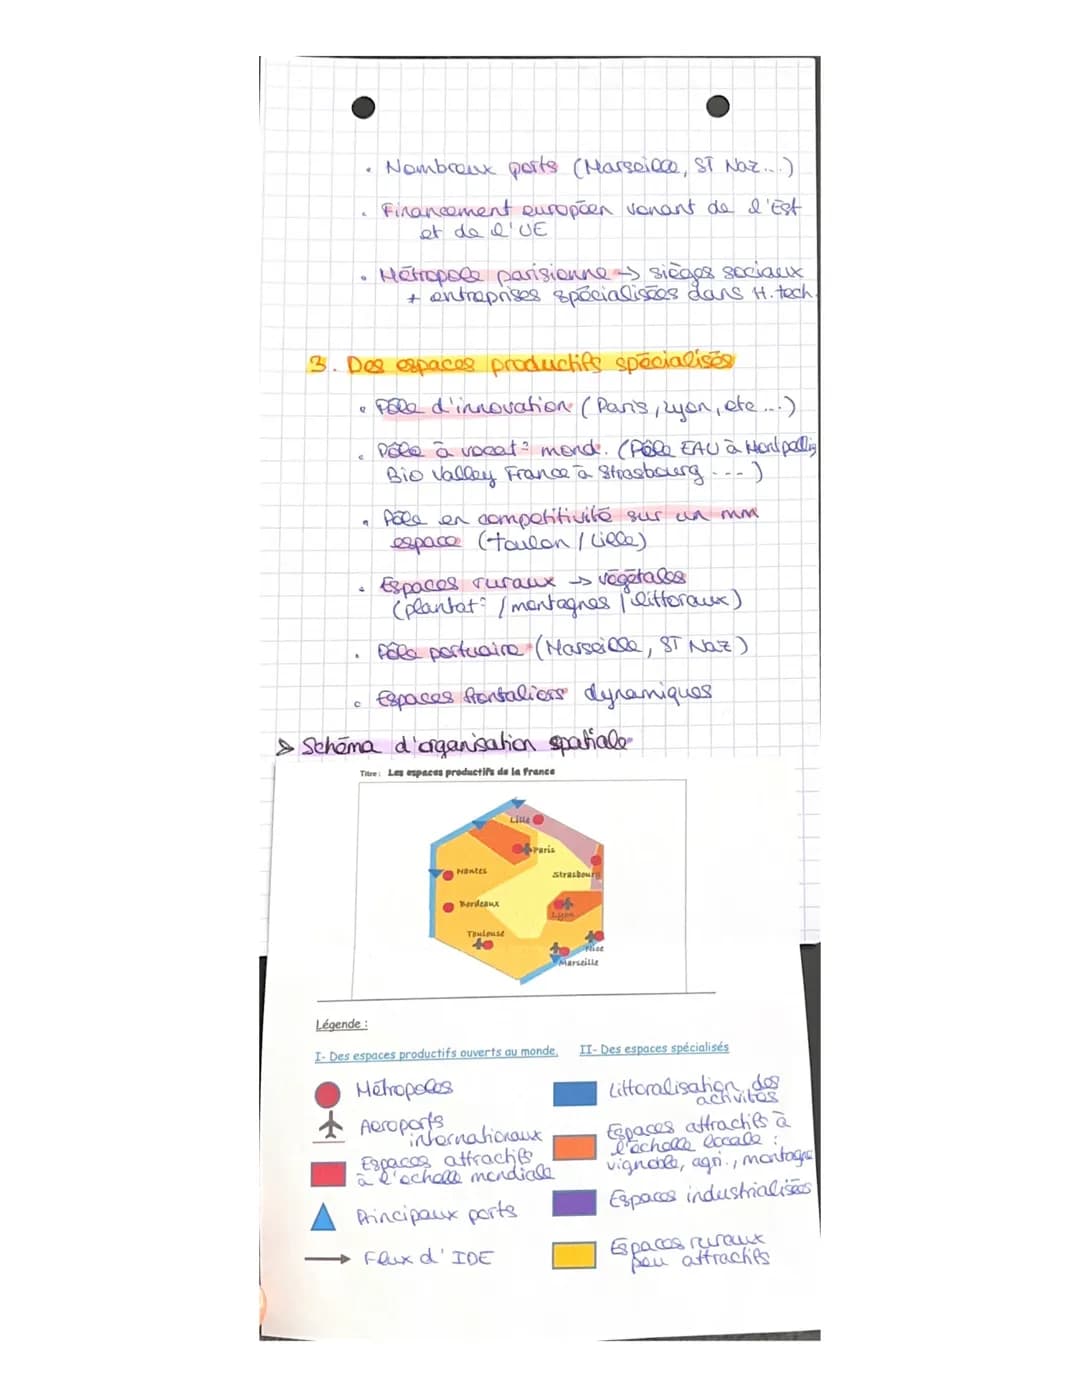 • Nombreux ports (Marseille, ST Naz...)
• Financement européen venant de l'Est
et de l'UE
• Métropole parisienne → sièges sociaux
+ entreprises spécialisées dans H.tech.
3. Des espaces productifs spécialisés
• Pôle d'innovation (Paris, Lyon, etc...)
• Pôle à vocat° mond. (Pôle EAU à Montpellier
Bio Valley France à Strasbourg ---)
• Pôle en compétitivité sur un mm
espace (Toulon / Lille)
• Espaces ruraux → végétales
(plantat° / montagnes / littoraux)
• Pôle portuaire (Marseille, ST Naz)
• Espaces frontaliers dynamiques
> Schéma d'organisation spatiale
Titre : Les espaces productifs de la France
Lille
Paris
Nantes
Strasbourg
Bordeaux
Lyon
Toulouse
Nice
Marseille
Légende :
I- Des espaces productifs ouverts au monde. II- Des espaces spécialisés
Métropoles
Littoralisation des
activités
Aéroports
internationaux
Espaces attractifs à
l'échelle locale :
vignoble, agri., montagne
Espaces attractifs
à l'échelle mondiale
Espaces industrialisés
Principaux ports
Flux d'IDE
Espaces ruraux
peu attractifs